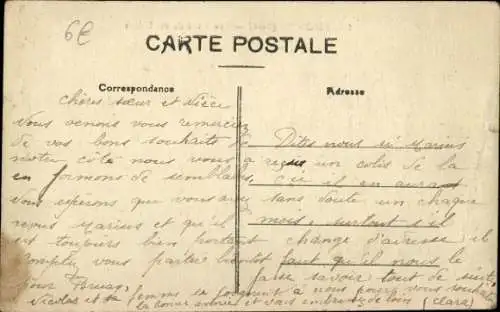 6€
CARTE POSTALE
Correspondance
Adresse
Chères sœur et nièce
Nous venons vous remercier
de vos bons souhaits de
notre côté nous vous
en formons de semblables.
Nous espérons que vous avez
reçus Marius et qu'il
est toujours bien portant
vous parler bientôt
pour
Dites nous si Marius
a reçus un colis de la
il en aurait
sans doute un chaque
mois, surtout s'il
change d'adresse il
faut qu'il nous le
fasse savoir tout de suite
Nicolas et sa femme se joignent à nous pour vous souhaiter
la bonne année et vous embrasser de loin (Clara)